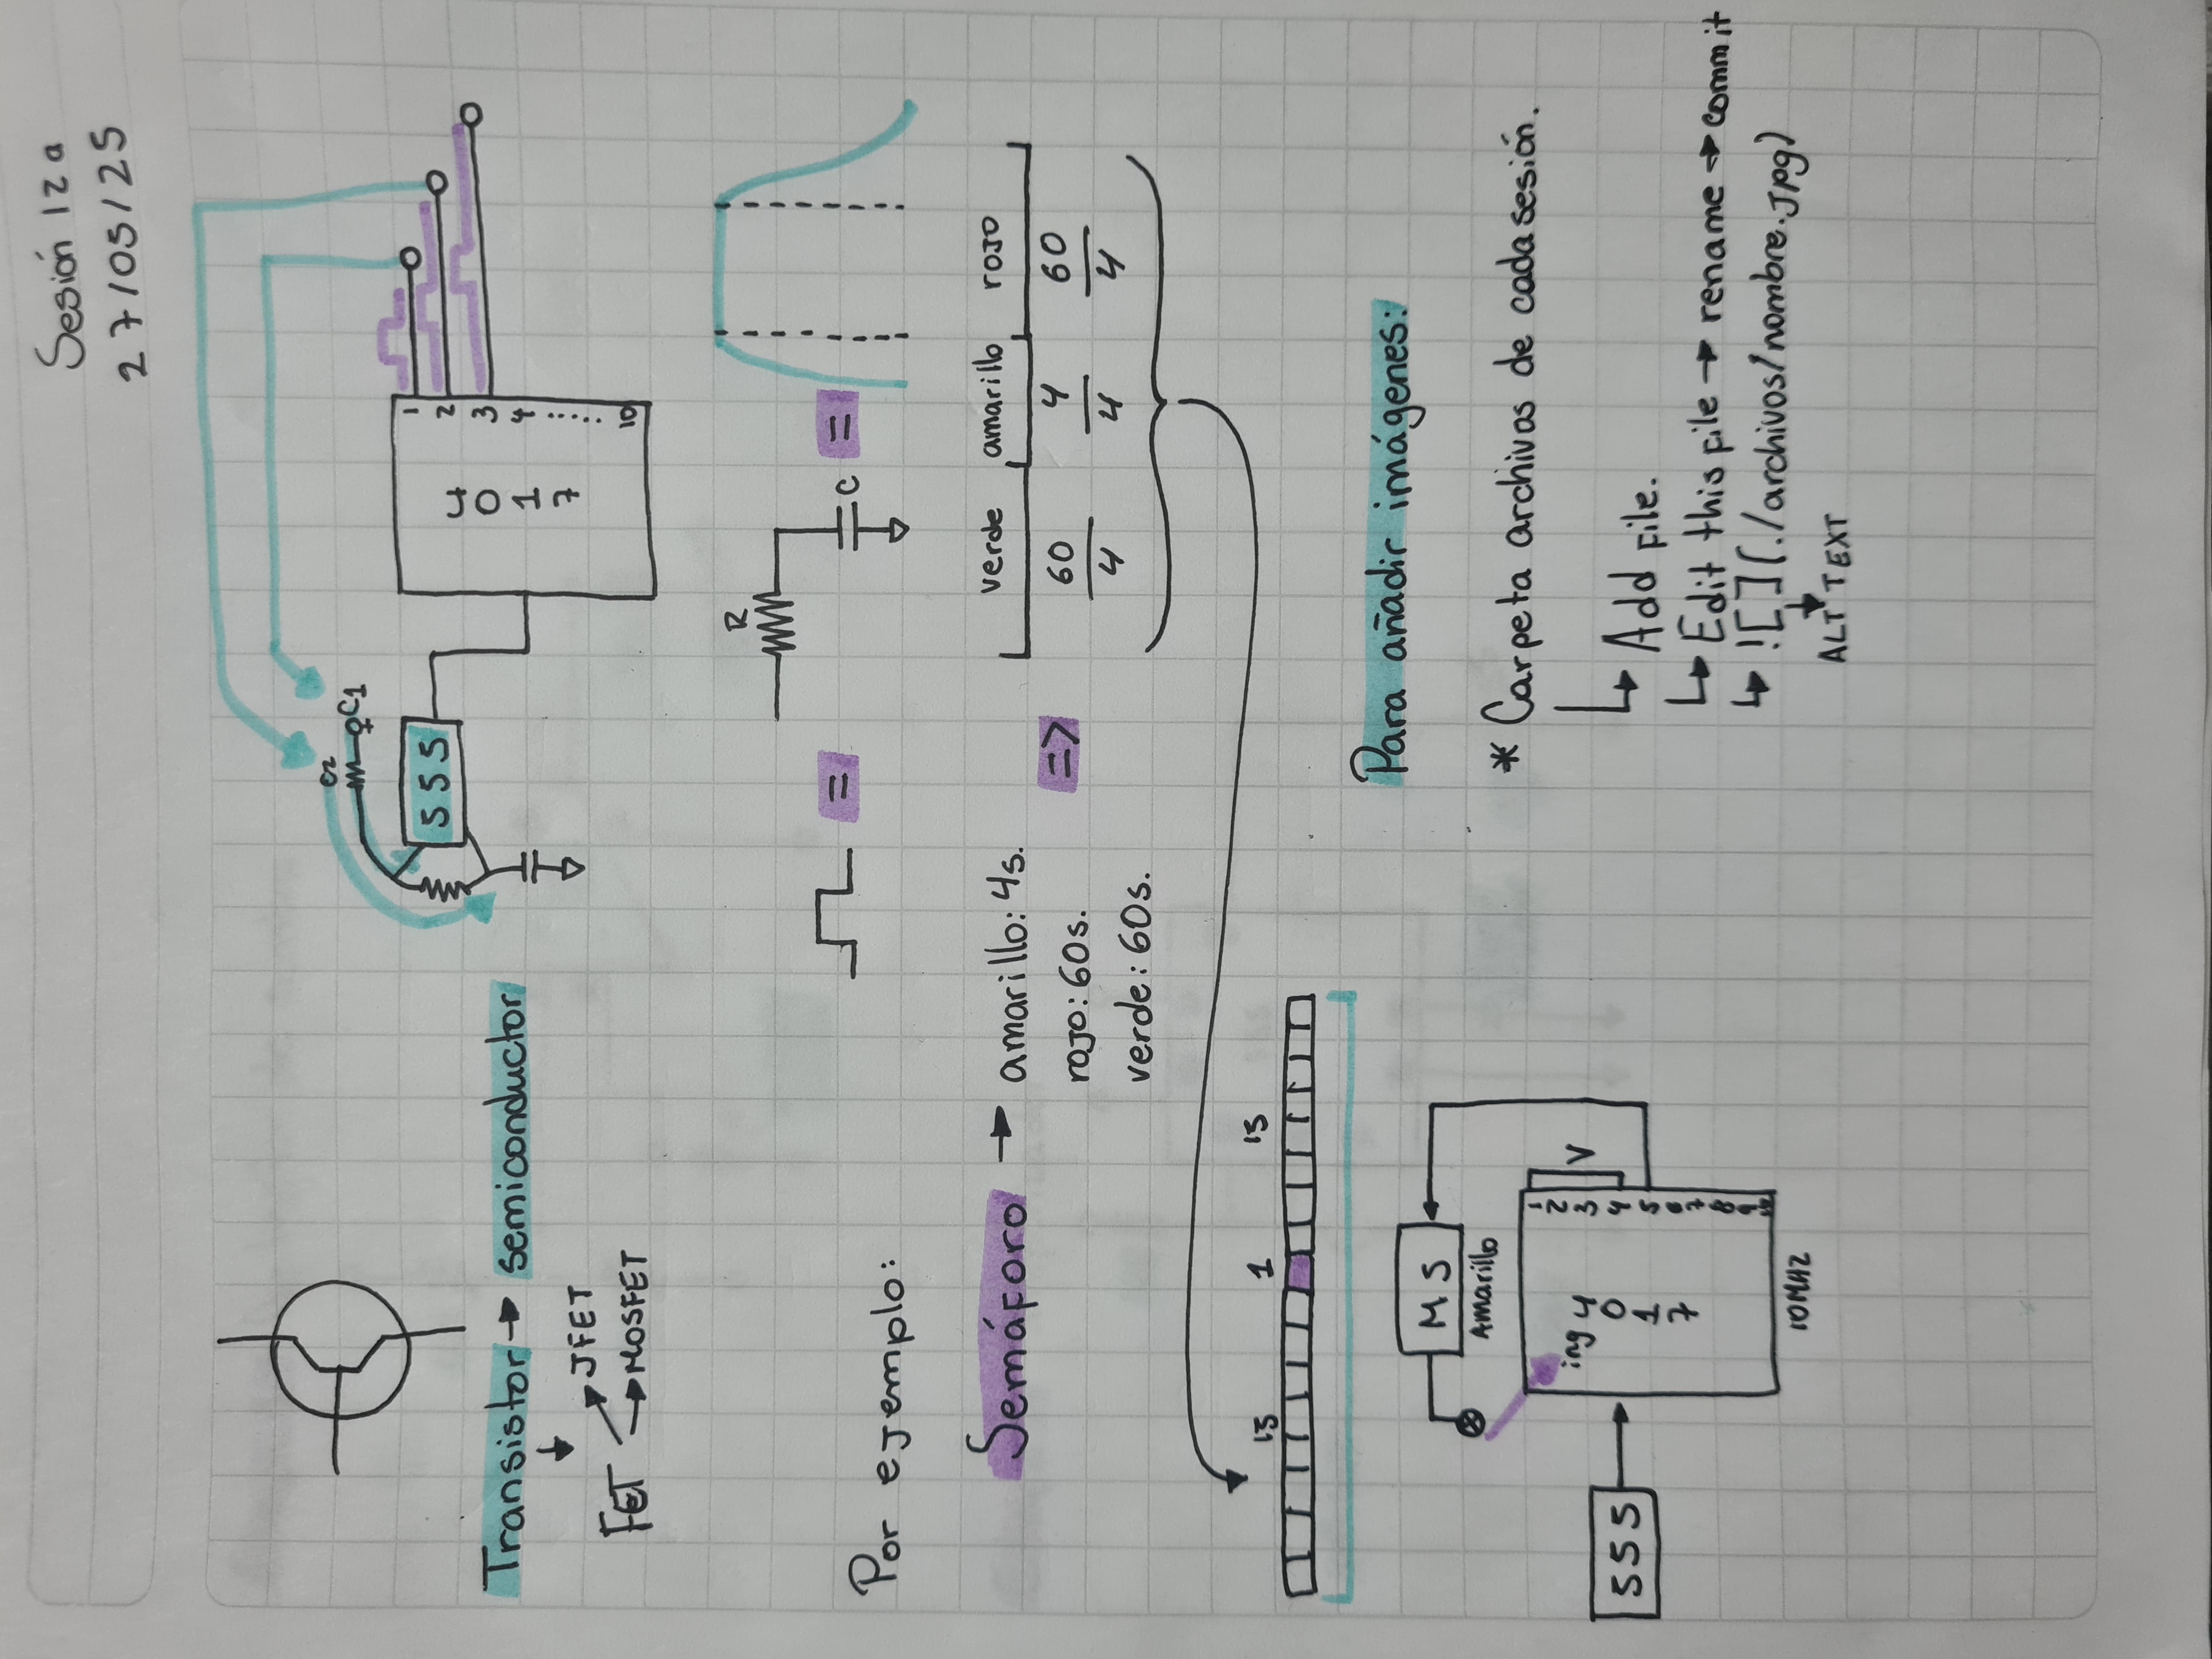 Sesión 12a
27/05/25
C2
C1
555
4
0
1
7
1
2
3
4
10
Transistor → semiconductor
FET
JFET
MOSFET
R
=
C
=
Por ejemplo:
Semáforo → amarillo: 4s.
rojo: 60s.
verde: 60s.
=>
verde amarillo rojo
60/4 4/4 60/4
15 1 15
MS
Amarillo
555
ing
4
0
1
7
1
2
3
4
5
6
7
8
9
10
V
10MHz
Para añadir imágenes:
* Carpeta archivos de cada sesión.
↳ Add file.
↳ Edit this file → rename → commit
↳ ![](./archivos/nombre.jpg)
ALT TEXT